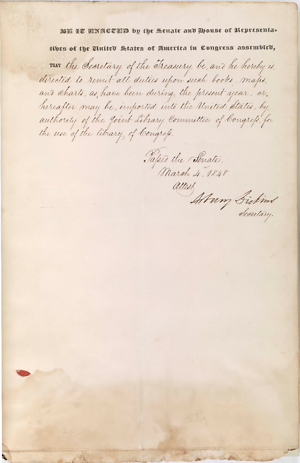 BE IT ENACTED by the Senate and House of Representa-
tives of the United States of America in Congress assembled,
THAT the Secretary of the Treasury be, and he hereby is
directed to remit all duties upon such books, maps,
and charts, as have been during the present year, or,
hereafter may be, imported into the United States, by
authority of the Joint Library Committee of Congress, for
the use of the library of Congress.
Passed the Senate,
March 4, 1848
Attest
Asbury Dickins
Secretary.